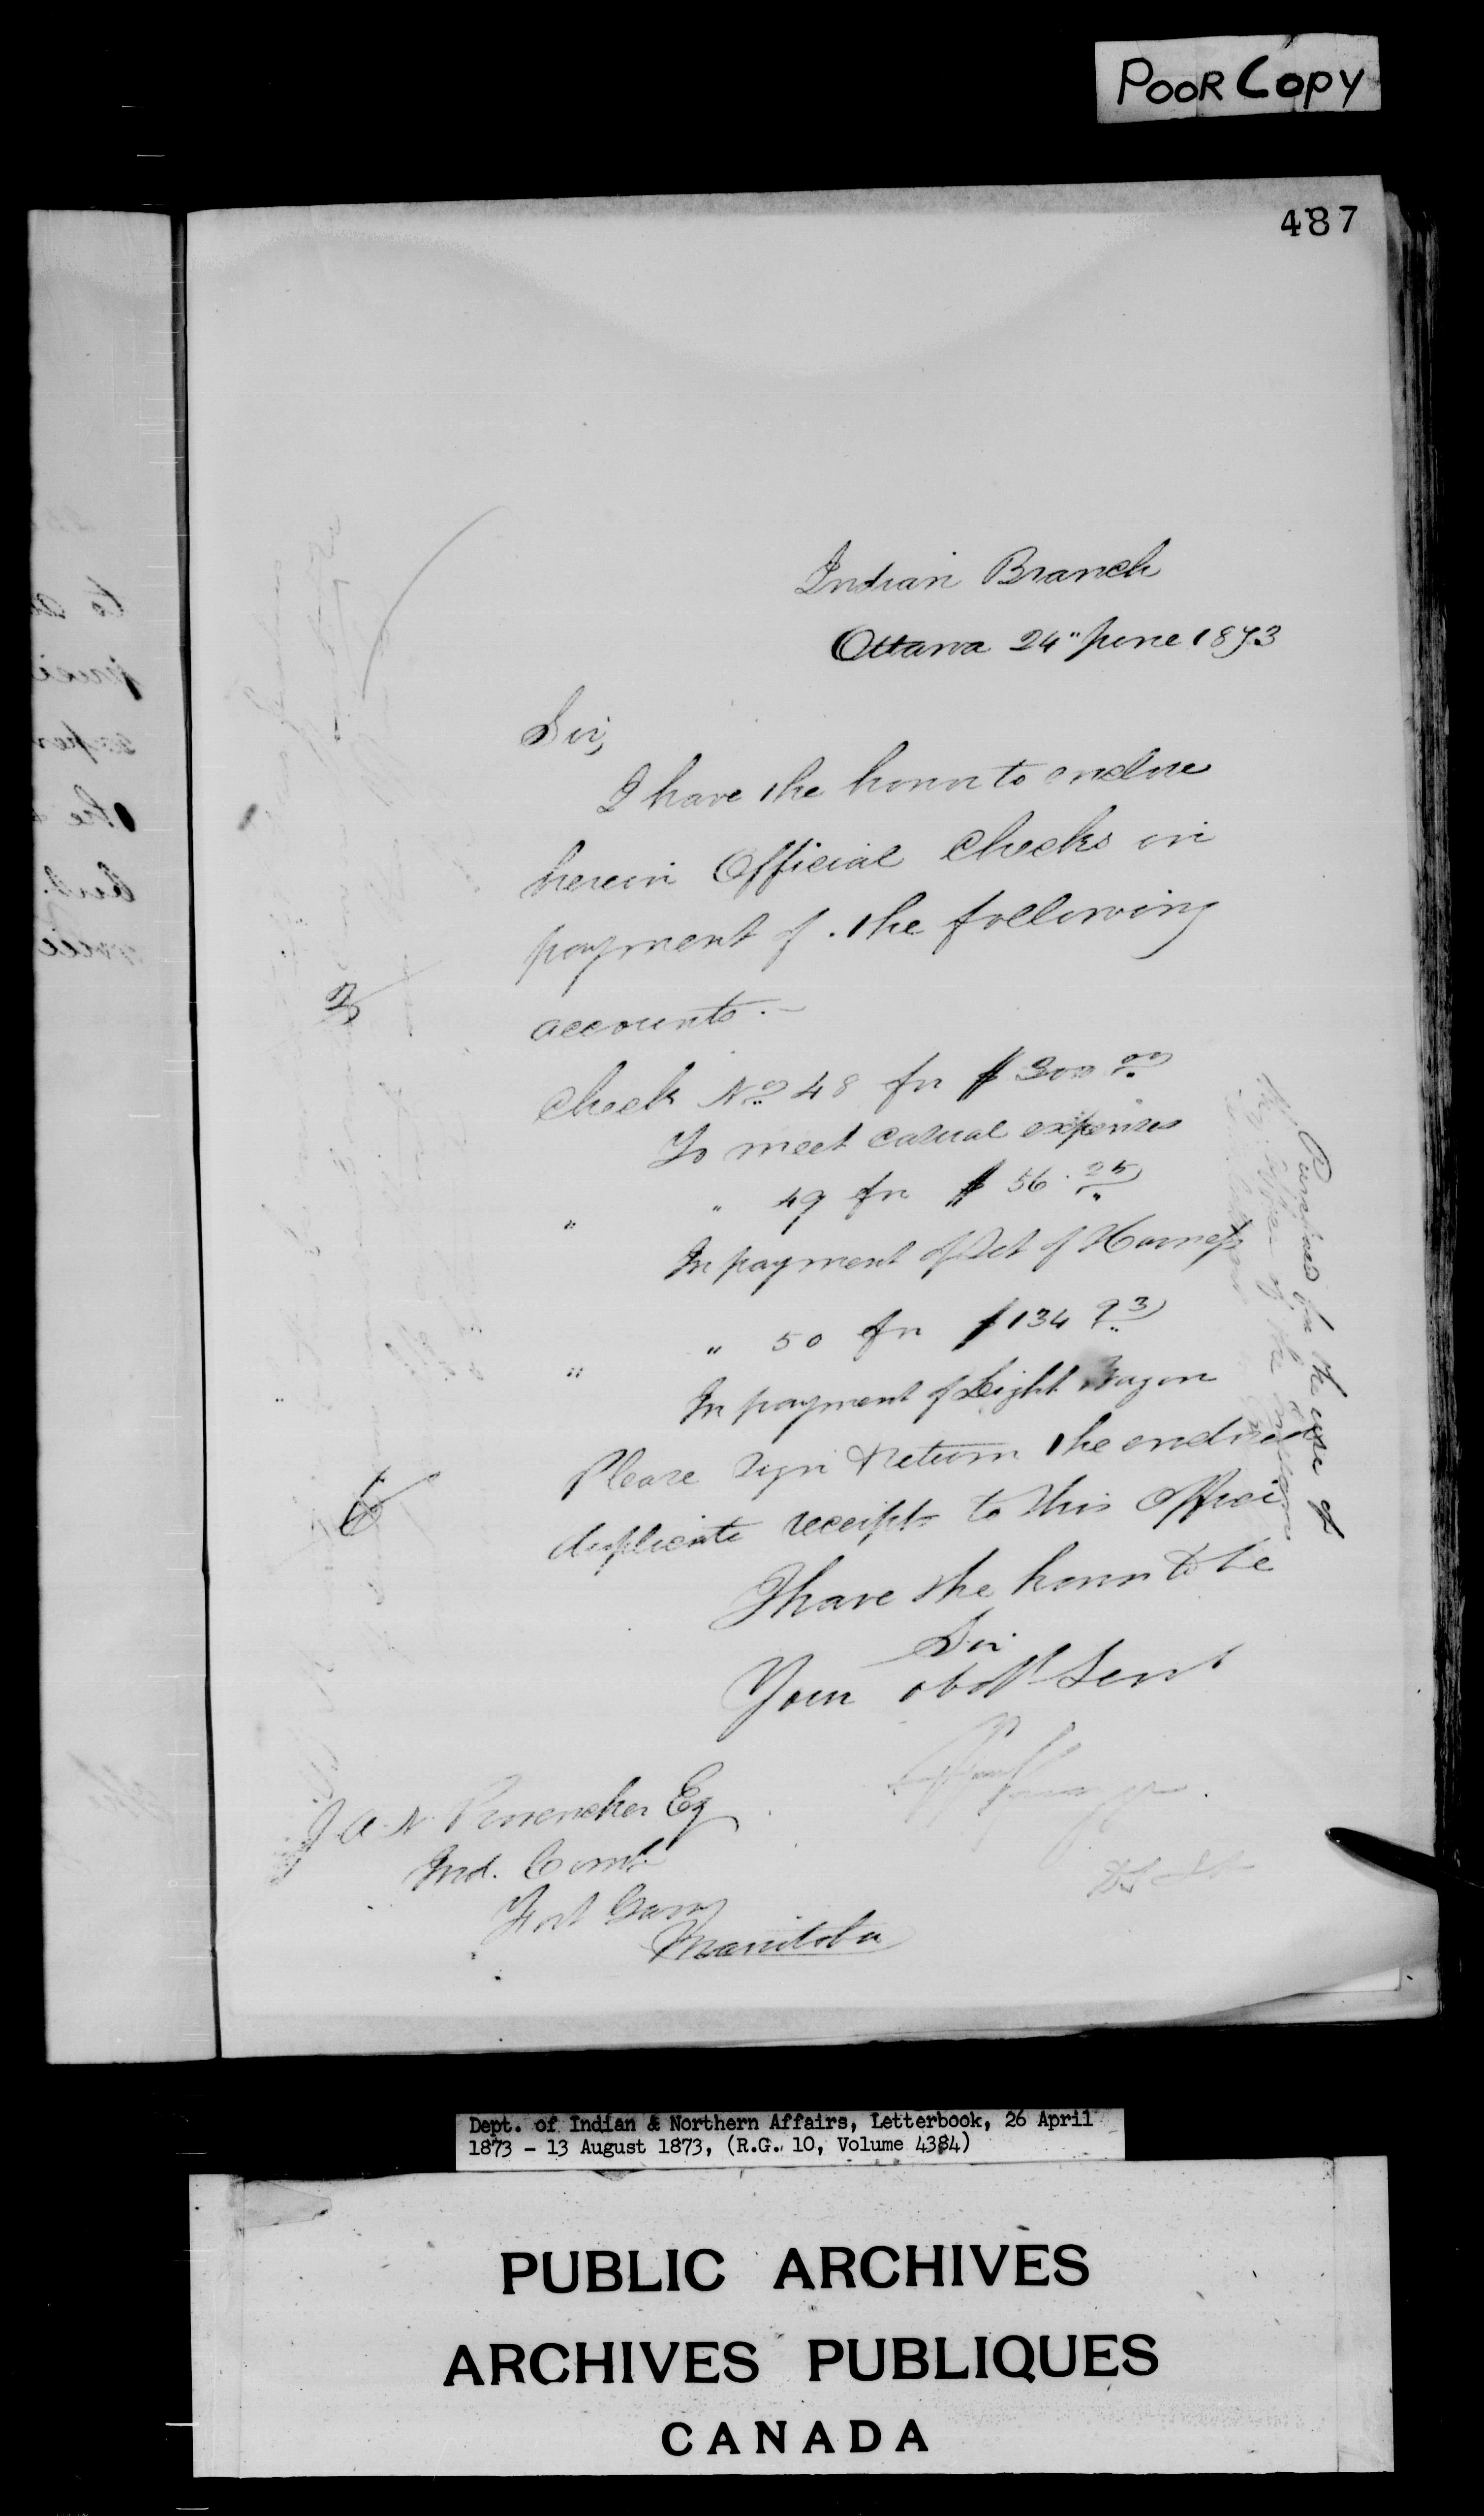 POOR COPY
487
Indian Branch
Ottawa 24" June 1873
Sir,
I have the honor to enclose
herein Official Checks in
payment of the following
accounts.-
Check No 48 for $300 00
To meet casual expenses
" " 49 for $56.25
In payment of Set of Harness
" " 50 for $134 93
In payment of Light Wagon
Purchased for the use of
the Office of the
Please sign & return the enclosed
duplicate receipts to this Office
I have the honor to be
Sir
Your obdt Servt
J. A. N. Provencher Eq
Ind. Comr
Fort Garry
Manitoba
Dept. of Indian & Northern Affairs, Letterbook, 26 April
1873 - 13 August 1873, (R.G. 10, Volume 4384)
PUBLIC ARCHIVES
ARCHIVES PUBLIQUES
CANADA